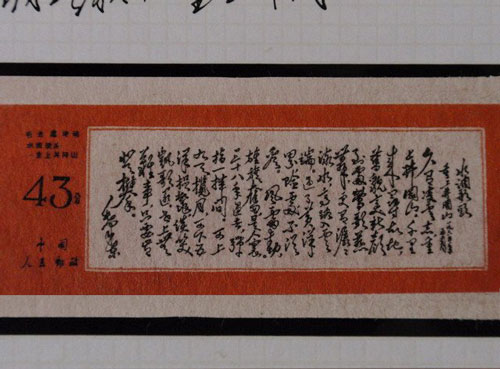 毛主席诗词
水调歌头
重上井冈山
43分
水调歌头
重上井冈山 一九六五年五月
久有凌云志 重
上井冈山 千里
来寻故地
旧貌变新颜
到处莺歌燕
舞 更有潺潺
流水 高路入云
端 过了黄洋界
险处不须看
风雷动
旌旗奋 是人寰
三十八年过去 弹
指一挥间 可上
九天揽月 可下五
洋捉鳖 谈笑
凯歌还 世上无
难事 只要肯
登攀
毛泽东